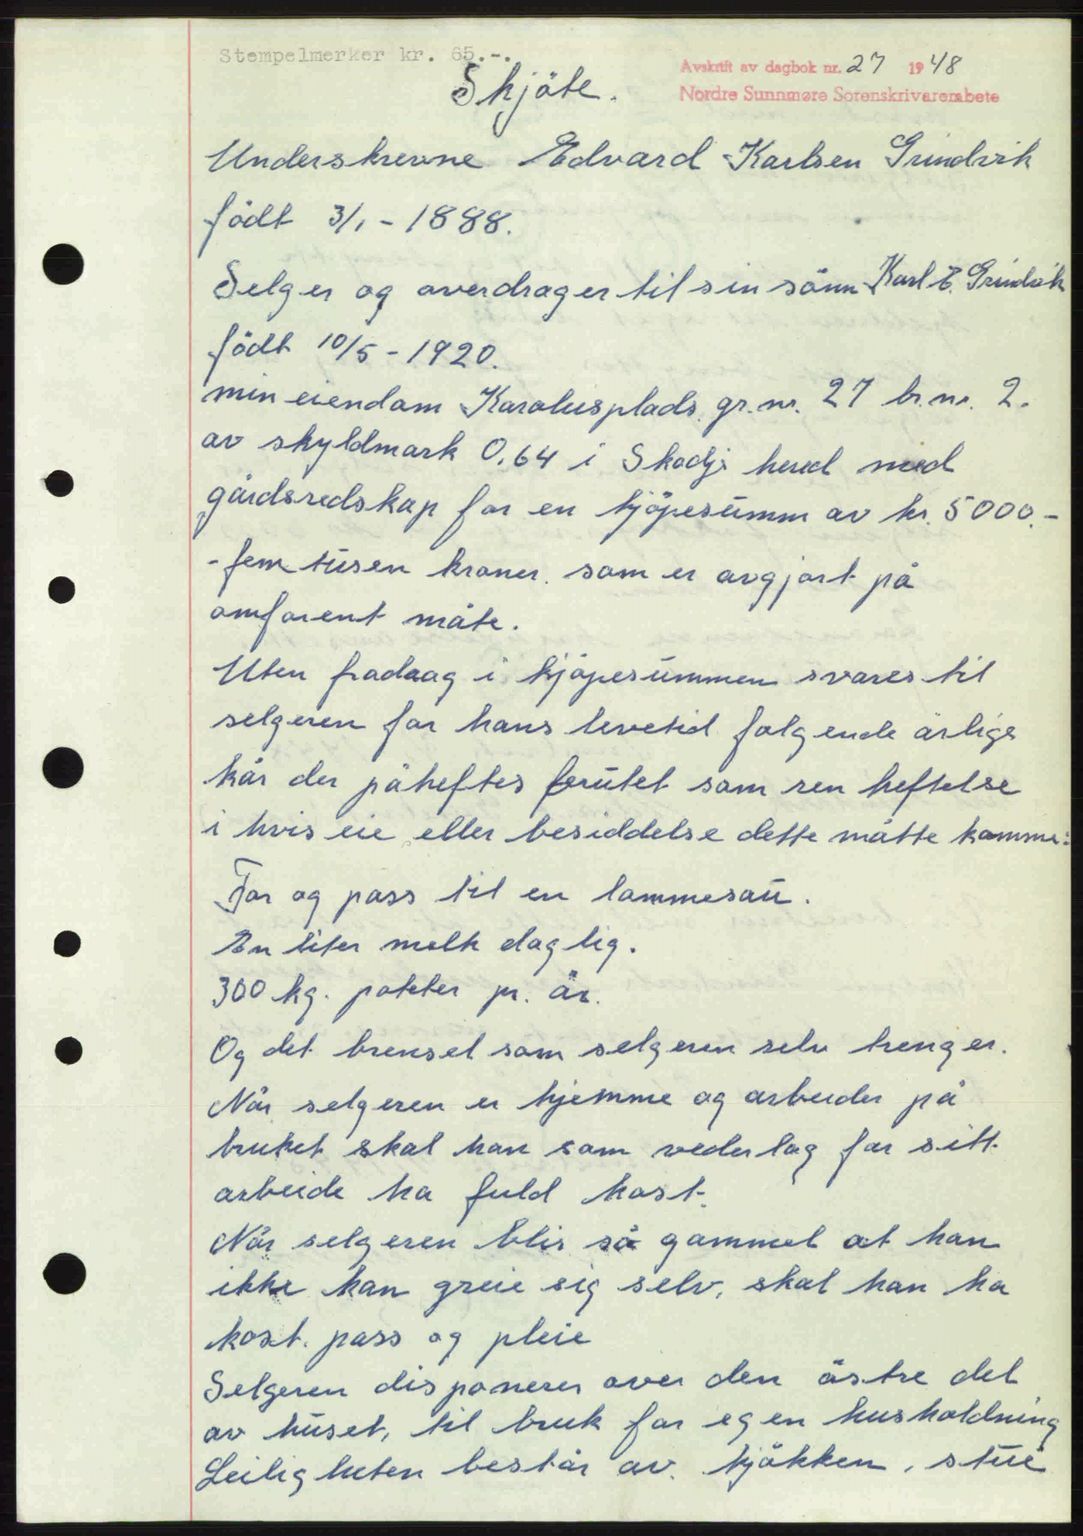 Stempelmerker kr. 65.-.
Avskrift av dagbok nr. 27 1948
Nordre Sunnmøre Sorenskriverembete
Skjöte.
Underskrevne Edvard Karlsen Grindvik
födt 3/1 - 1888.
Selger og overdrager til sin sönn Karl E. Grindvik
födt 10/5 - 1920.
min eiendom Karolusplads gr.nr. 27 br.nr. 2.
av skyldmark 0,64 i Skodje hered med
gårdsredskap for en kjöpesumm av kr. 5000.-
- fem tusen kroner. som er avgjort på
omforent måte.
Uten fradaag i kjöpesummen svares til
selgeren for hans levetid folgende årlige
kår der påheftes bruket som ren heftelse
i hvis eie eller besiddelse dette måtte komme:
For og pass til en lammesau.
En liter melk daglig.
300 kg. poteter pr. år.
Og det brensel som selgeren selv trenger.
Når selgeren er hjemme og arbeider på
bruket skal han som vederlag for sitt
arbeide ha fuld kost.
Når selgeren blir så gammel at han
ikke kan greie sig selv, skal han ha
kost. pass og pleie
Selgeren disponerer over den östre del
av huset, til bruk for egen husholdning
Leiligheten består av. kjökken, stue